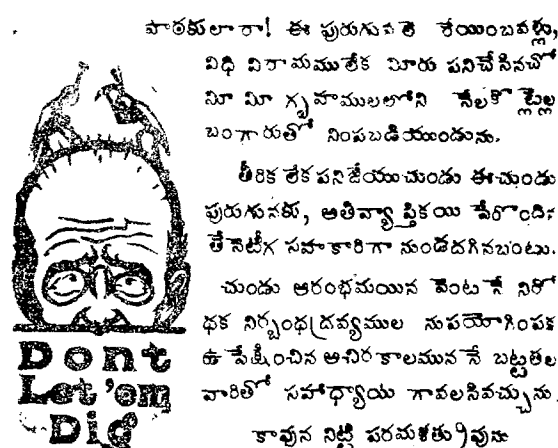 పాఠకులారా! ఈ పురుగువలె రేయింబవళ్లు,
విధి విరామములేక మీరు పనిచేసినచో
మీ మీ గృహములలోని నేలకొట్లెల్ల
బంగారుతో నింపబడియుండును.
తీరిక లేక పనిజేయుచుండు ఈచుండు
పురుగునకు, అతివ్యాప్తికయి పేరొందిన
తేనెటీగ సహకారిగా నుండదగినబంటు.
చుండు ఆరంభమయిన వెంటనే నిరో
ధక నిర్బంధద్రవ్యముల నుపయోగింపక
ఉపేక్షించిన అచిరకాలముననే బట్టతల
వారితో సహాధ్యాయ గావలసివచ్చును.
కావున నిట్టి పరమశత్రువును
Dont
Let'em
Dig